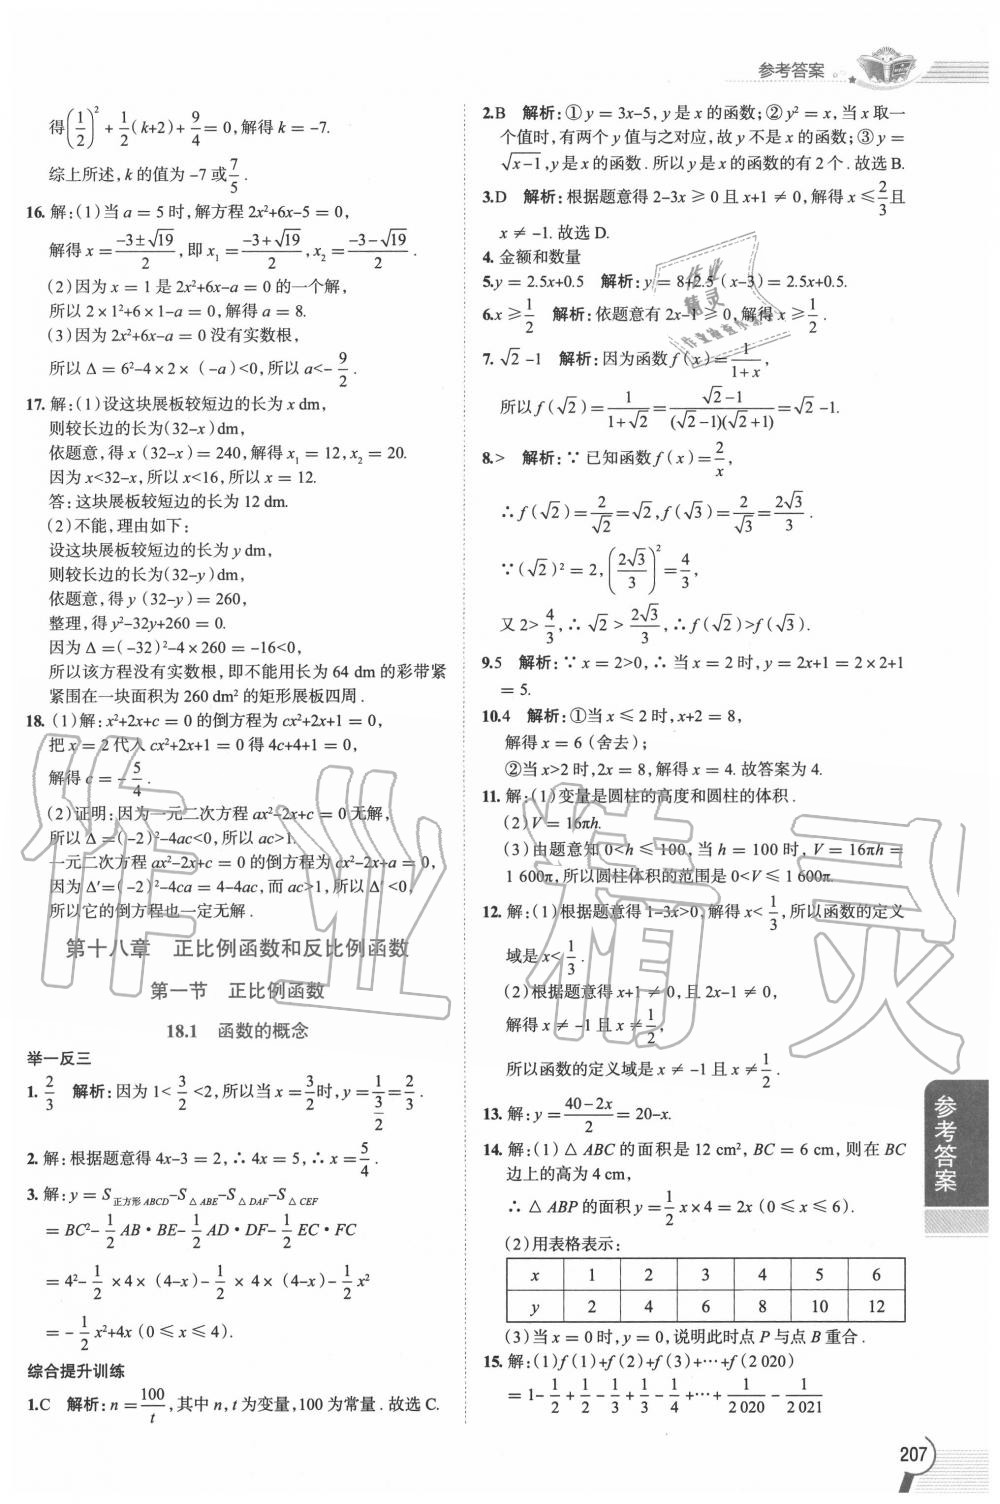 参考答案
得(1/2)²+1/2(k+2)+9/4=0,解得k=-7.
综上所述,k的值为-7或7/5.
16.解:(1)当a=5时,解方程2x²+6x-5=0,
解得x=(-3±√19)/2,即x₁=(-3+√19)/2,x₂=(-3-√19)/2.
(2)因为x=1是2x²+6x-a=0的一个解,
所以2×1²+6×1-a=0,解得a=8.
(3)因为2x²+6x-a=0没有实数根,
所以Δ=6²-4×2×(-a)<0,所以a<-9/2.
17.解:(1)设这块展板较短边的长为x dm,
则较长边的长为(32-x)dm,
依题意,得x(32-x)=240,解得x₁=12,x₂=20.
因为x<32-x,所以x<16,所以x=12.
答:这块展板较短边的长为12 dm.
(2)不能,理由如下:
设这块展板较短边的长为y dm,
则较长边的长为(32-y)dm,
依题意,得y(32-y)=260,
整理,得y²-32y+260=0.
因为Δ=(-32)²-4×260=-16<0,
所以该方程没有实数根,即不能用长为64 dm的彩带紧
紧围在一块面积为260 dm²的矩形展板四周.
18.(1)解:x²+2x+c=0的倒方程为cx²+2x+1=0,
把x=2代入cx²+2x+1=0得4c+4+1=0,
解得c=-5/4.
(2)证明:因为一元二次方程ax²-2x+c=0无解,
所以Δ=(-2)²-4ac<0,所以ac>1.
一元二次方程ax²-2x+c=0的倒方程为cx²-2x+a=0,
因为Δ′=(-2)²-4ca=4-4ac,而ac>1,所以Δ′<0,
所以它的倒方程也一定无解.
第十八章 正比例函数和反比例函数
第一节 正比例函数
18.1 函数的概念
举一反三
1.2/3 解析:因为1<3/2<2,所以当x=3/2时,y=1/(3/2)=2/3.
2.解:根据题意得4x-3=2,∴4x=5,∴x=5/4.
3.解:y=S正方形ABCD-S△ABE-S△DAF-S△CEF
=BC²-1/2AB·BE-1/2AD·DF-1/2EC·FC
=4²-1/2×4×(4-x)-1/2×4×(4-x)-1/2x²
=-1/2x²+4x(0≤x≤4).
综合提升训练
1.C 解析:n=100/t,其中n,t为变量,100为常量.故选C.
2.B 解析:①y=3x-5,y是x的函数;②y²=x,当x取一
个值时,有两个y值与之对应,故y不是x的函数;③y=
√(x-1),y是x的函数.所以y是x的函数的有2个.故选B.
3.D 解析:根据题意得2-3x≥0且x+1≠0,解得x≤2/3且
x≠-1.故选D.
4.金额和数量
5.y=2.5x+0.5 解析:y=8+2.5(x-3)=2.5x+0.5.
6.x≥1/2 解析:依题意有2x-1≥0,解得x≥1/2.
7.√2-1 解析:因为函数f(x)=1/(1+x),
所以f(√2)=1/(1+√2)=(√2-1)/((√2-1)(√2+1))=√2-1.
8.> 解析:∵已知函数f(x)=2/x,
∴f(√2)=2/√2=√2,f(√3)=2/√3=2√3/3.
∵(√2)²=2,(2√3/3)²=4/3,
又2>4/3,∴√2>2√3/3,∴f(√2)>f(√3).
9.5 解析:∵x=2>0,∴当x=2时,y=2x+1=2×2+1
=5.
10.4 解析:①当x≤2时,x+2=8,
解得x=6(舍去);
②当x>2时,2x=8,解得x=4.故答案为4.
11.解:(1)变量是圆柱的高度和圆柱的体积.
(2)V=16πh.
(3)由题意知0<h≤100,当h=100时,V=16πh=
1 600π,所以圆柱体积的范围是0<V≤1 600π.
12.解:(1)根据题意得1-3x>0,解得x<1/3,所以函数的定义
域是x<1/3.
(2)根据题意得x+1≠0,且2x-1≠0,
解得x≠-1且x≠1/2,
所以函数的定义域是x≠-1且x≠1/2.
13.解:y=(40-2x)/2=20-x.
14.解:(1)△ABC的面积是12 cm²,BC=6 cm,则在BC
边上的高为4 cm,
∴△ABP的面积y=1/2x×4=2x(0≤x≤6).
(2)用表格表示:
x 1 2 3 4 5 6
y 2 4 6 8 10 12
(3)当x=0时,y=0,说明此时点P与点B重合.
15.解:(1)f(1)+f(2)+f(3)+…+f(2 020)
=1-1/2+1/2-1/3+1/3-1/4+…+1/2 020-1/2 021
参考答案
207
作业精灵
作业
精灵